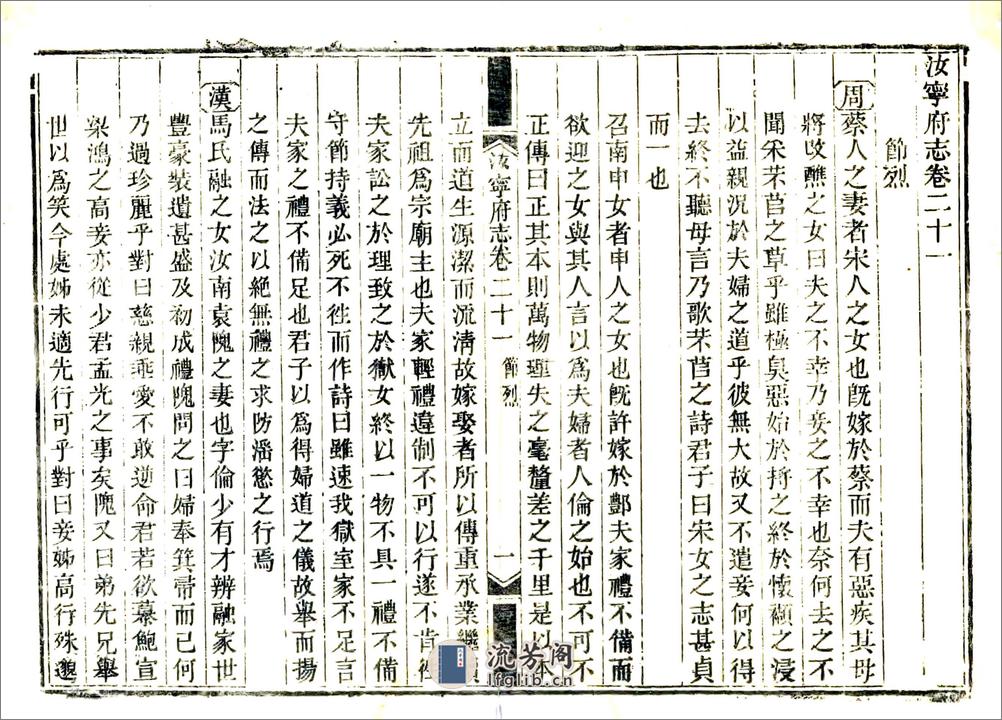 汝寧府志卷二十一
節烈
周 蔡人之妻者宋人之女也旣嫁於蔡而夫有惡疾其母
將改醮之女曰夫之不幸乃妾之不幸也奈何去之不
聞采芣苢之草乎雖極臭惡始於捋之終於懷襭之浸
以益親況於夫婦之道乎彼無大故又不遣妾何以得
去終不聽母言乃歌芣苢之詩君子曰宋女之志甚貞
而一也
召南申女者申人之女也旣許嫁於酆夫家禮不備而
欲迎之女與其人言以爲夫婦者人倫之始也不可不
正傳曰正其本則萬物理失之毫釐差之千里是以本
汝寧府志卷二十一 節烈 一
立而道生源潔而流清故嫁娶者所以傳重承業繼
先祖爲宗廟主也夫家輕禮違制不可以行遂不肯往
夫家訟之於理致之於獄女終以一物不具一禮不備
守節持義必死不往而作詩曰雖速我獄室家不足言
夫家之禮不備足也君子以爲得婦道之儀故舉而揚
之傳而法之以絕無禮之求防滛慾之行焉
漢 馬氏融之女汝南袁隗之妻也字倫少有才辨融家世
豐豪裝遺甚盛及初成禮隗問之曰婦奉箕帚而已何
乃過珍麗乎對曰慈親乖愛不敢逆命君若欲慕鮑宣
梁鴻之高妾亦從少君孟光之事矣隗又曰弟先兄舉
世以爲笑今處姊未適先行可乎對曰妾姊高行殊邈
流芳阁
lfglib.cn